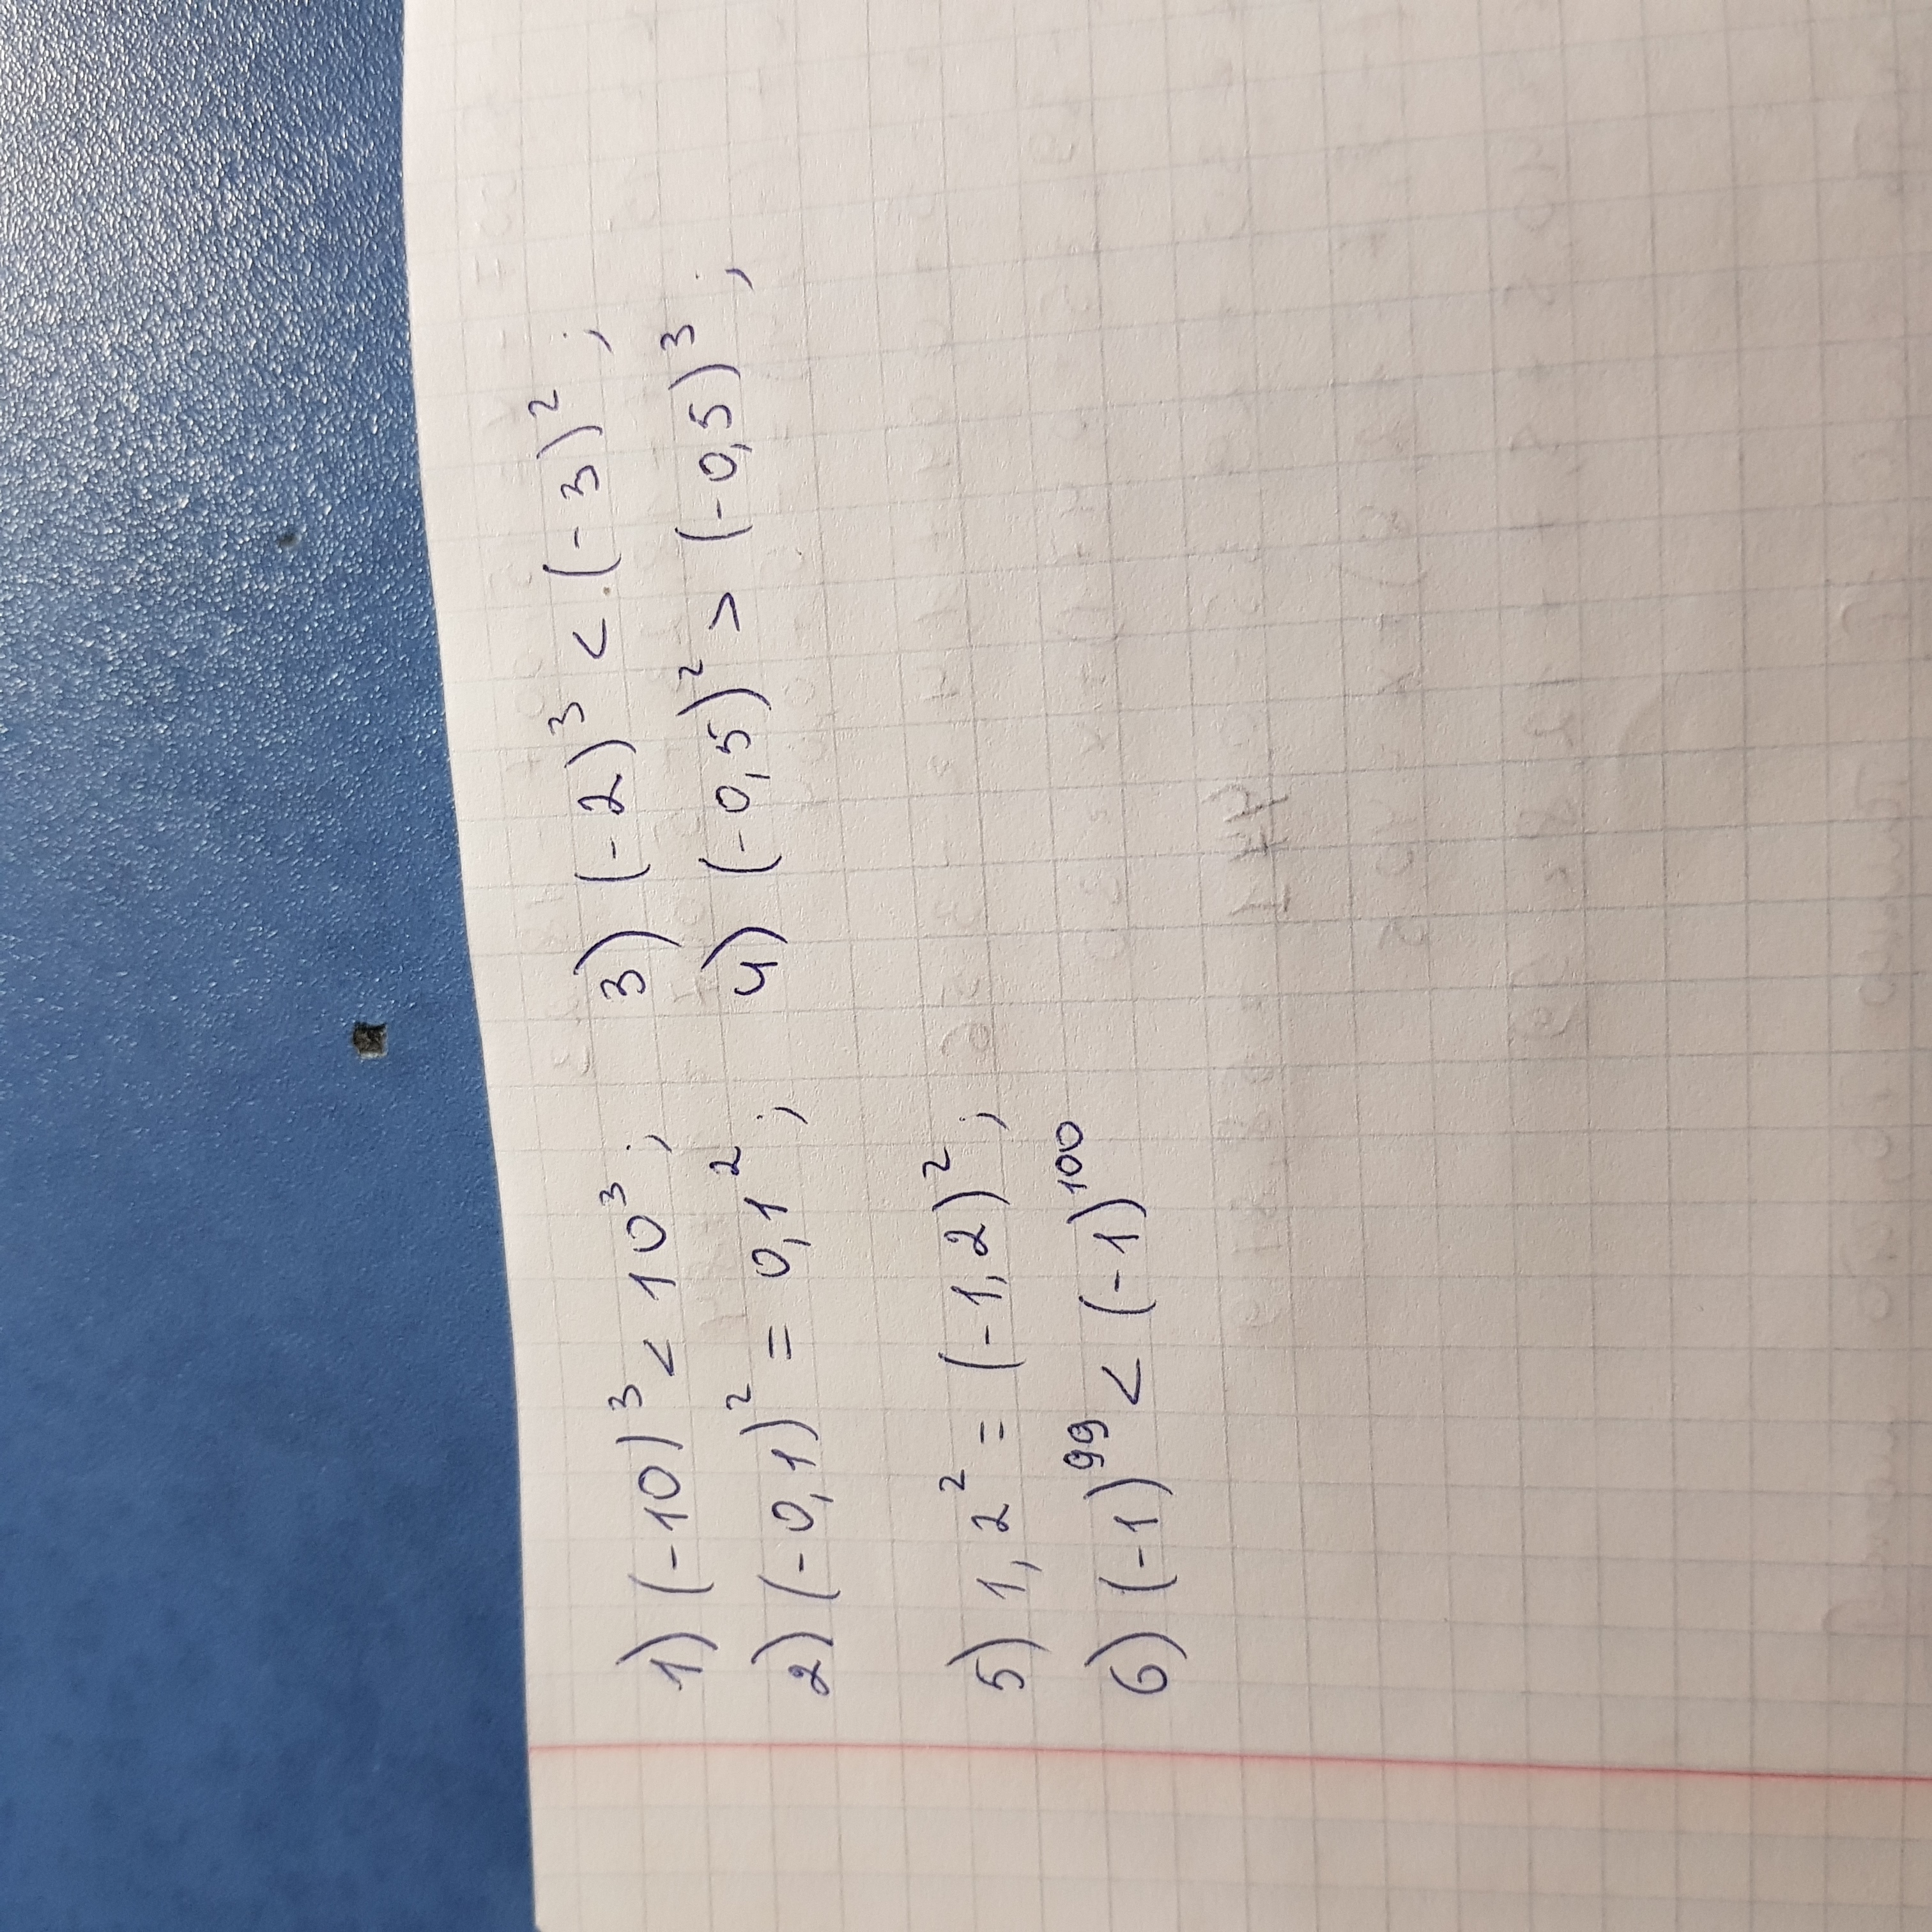 1) (-10)³ < 10³;
2) (-0,1)² = 0,1²;
3) (-2)³ < (-3)²;
4) (-0,5)² > (-0,5)³;
5) 1,2² = (-1,2)²;
6) (-1)⁹⁹ < (-1)¹⁰⁰